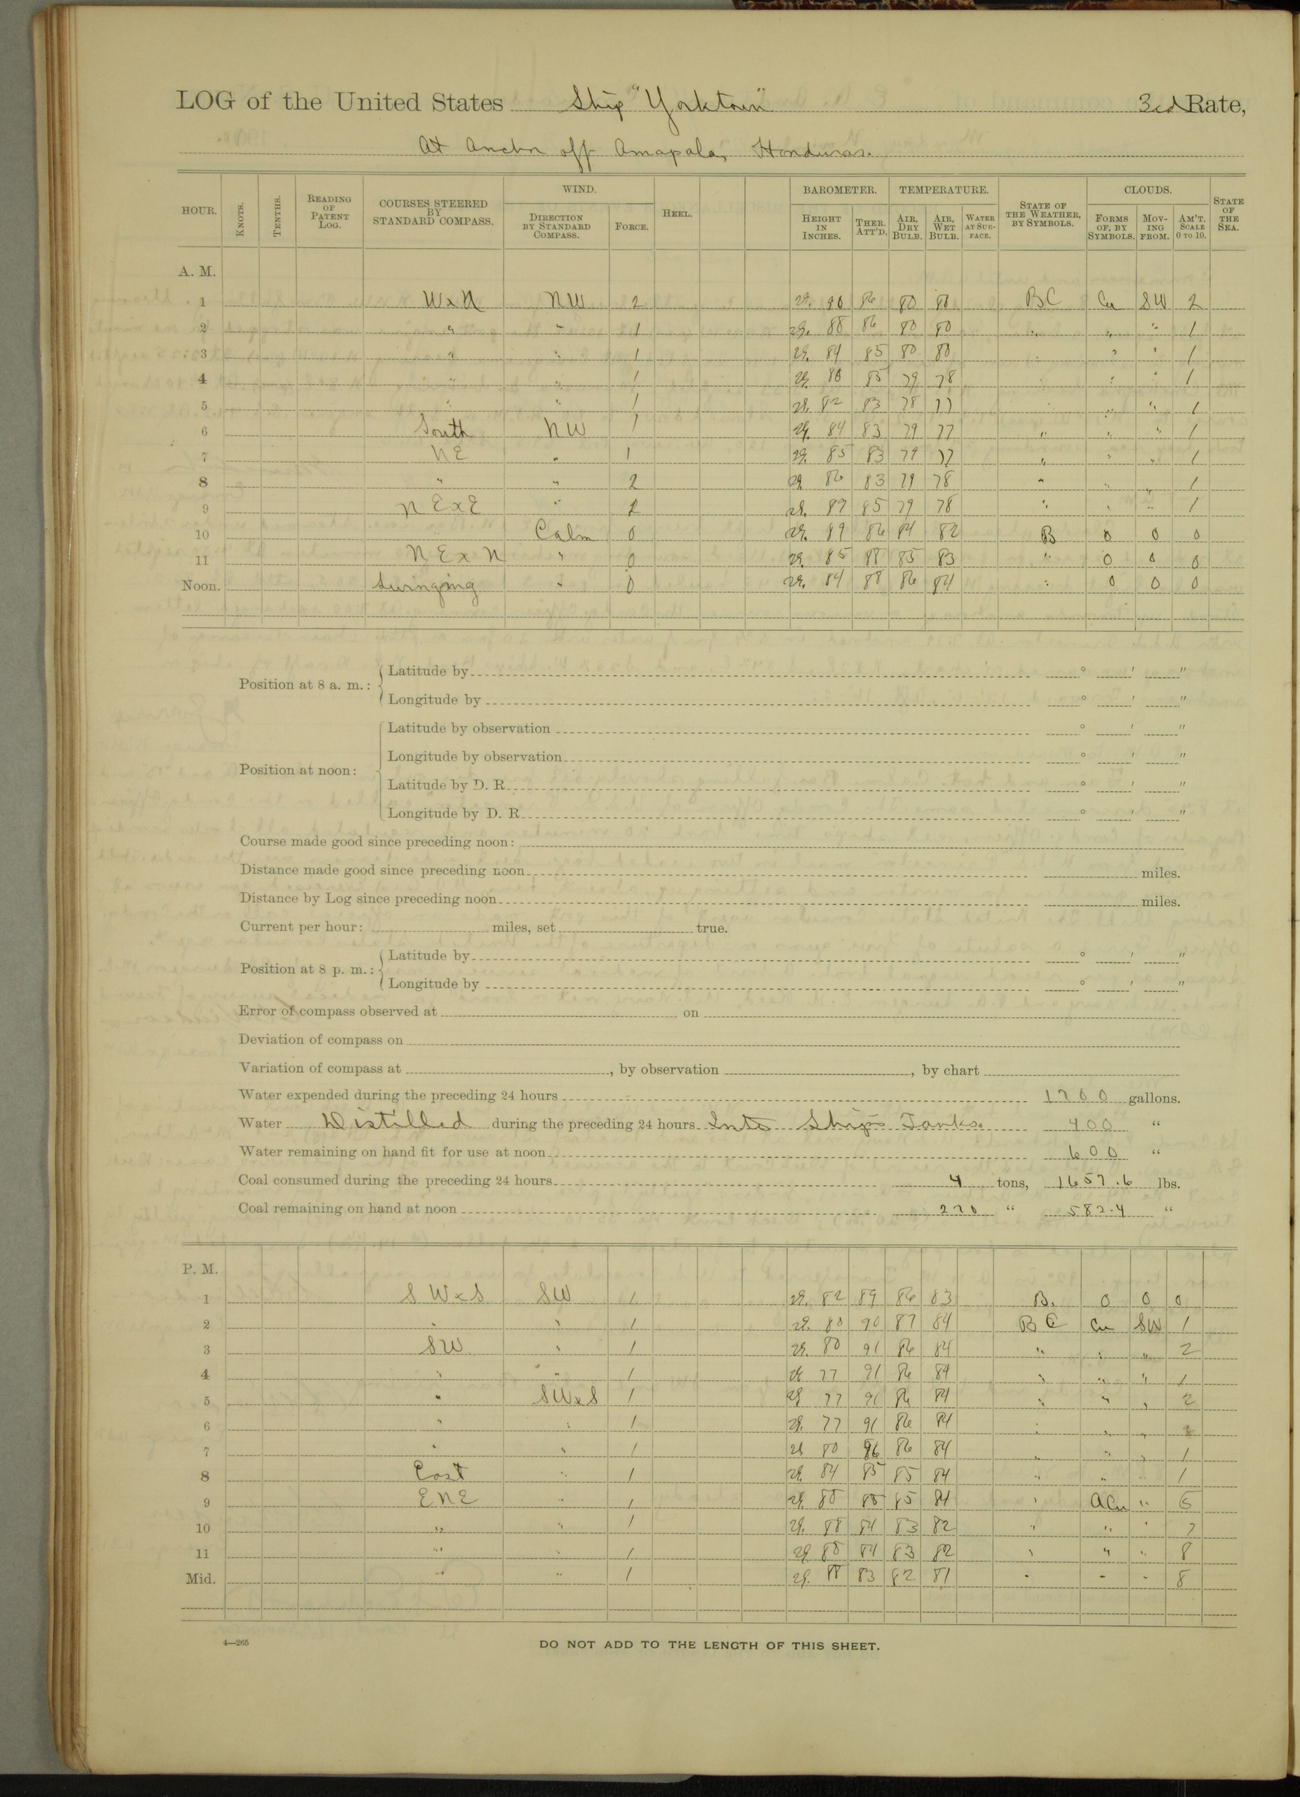 LOG of the United States Ship "Yorktown" 3rd Rate,
At Anchor off Amapala, Honduras.
HOUR. KNOTS. TENTHS. READING OF PATENT LOG. COURSES STEERED BY STANDARD COMPASS. WIND. DIRECTION BY STANDARD COMPASS. FORCE. HEEL. BAROMETER. HEIGHT IN INCHES. THER. ATT'D. TEMPERATURE. AIR, DRY BULB. AIR, WET BULB. WATER AT SURFACE. STATE OF THE WEATHER, BY SYMBOLS. CLOUDS. FORMS OF, BY SYMBOLS. MOVING FROM. AM'T. SCALE 0 TO 10. STATE OF THE SEA.
A. M.
1 WxN NW 2 29. 90 86 80 80 BC Cu SW 2
2 " " 1 29. 88 86 80 80 " " " 1
3 " " 1 29. 84 85 80 80 " " 1
4 " " 1 29. 85 79 78 " " 1
5 " " 1 29. 82 83 78 77 " " 1
6 South NW 1 29. 84 83 79 77 " " " 1
7 NE " 1 29. 85 83 79 77 " " " 1
8 " " 2 29. 86 83 79 78 " " " 1
9 NExE " 2 29. 89 85 79 78 " " " 1
10 Calm 0 29. 89 86 84 82 B 0 0 0
11 NExN " 0 29. 85 88 85 83 " 0 0 0
Noon. Swinging " 0 29. 84 88 86 84 " 0 0 0
Position at 8 a. m.: Latitude by ° ' "
Longitude by ° ' "
Position at noon: Latitude by observation ° ' "
Longitude by observation ° ' "
Latitude by D. R. ° ' "
Longitude by D. R. ° ' "
Course made good since preceding noon:
Distance made good since preceding noon miles.
Distance by Log since preceding noon miles.
Current per hour: miles, set true.
Position at 8 p. m.: Latitude by ° ' "
Longitude by ° ' "
Error of compass observed at on
Deviation of compass on
Variation of compass at , by observation , by chart
Water expended during the preceding 24 hours 1700 gallons.
Water Distilled during the preceding 24 hours Into Ship's Tanks. 400 "
Water remaining on hand fit for use at noon 600 "
Coal consumed during the preceding 24 hours 4 tons, 1657.6 lbs.
Coal remaining on hand at noon 270 " 582.4 "
P. M.
1 SWxS SW 1 29. 82 89 86 83 B. 0 0 0
2 " " 1 29. 80 90 87 84 BC Cu SW 1
3 SW " 1 29. 80 91 86 84 " " " 2
4 " " 1 29. 77 91 86 84 " " " 1
5 " SWxS 1 29. 77 91 86 84 " " " 2
6 " " 1 29. 77 91 86 84 " " "
7 " " 1 29. 80 86 84 " " " 1
8 East " 1 29. 84 85 85 84 " " 1
9 ENE " 1 29. 88 85 85 84 " ACu " 6
10 " " 1 29. 88 84 83 82 " " " 7
11 " 1 29. 88 84 83 82 " " " 8
Mid. " " 1 29. 88 83 82 81 " " " 8
4—265
DO NOT ADD TO THE LENGTH OF THIS SHEET.